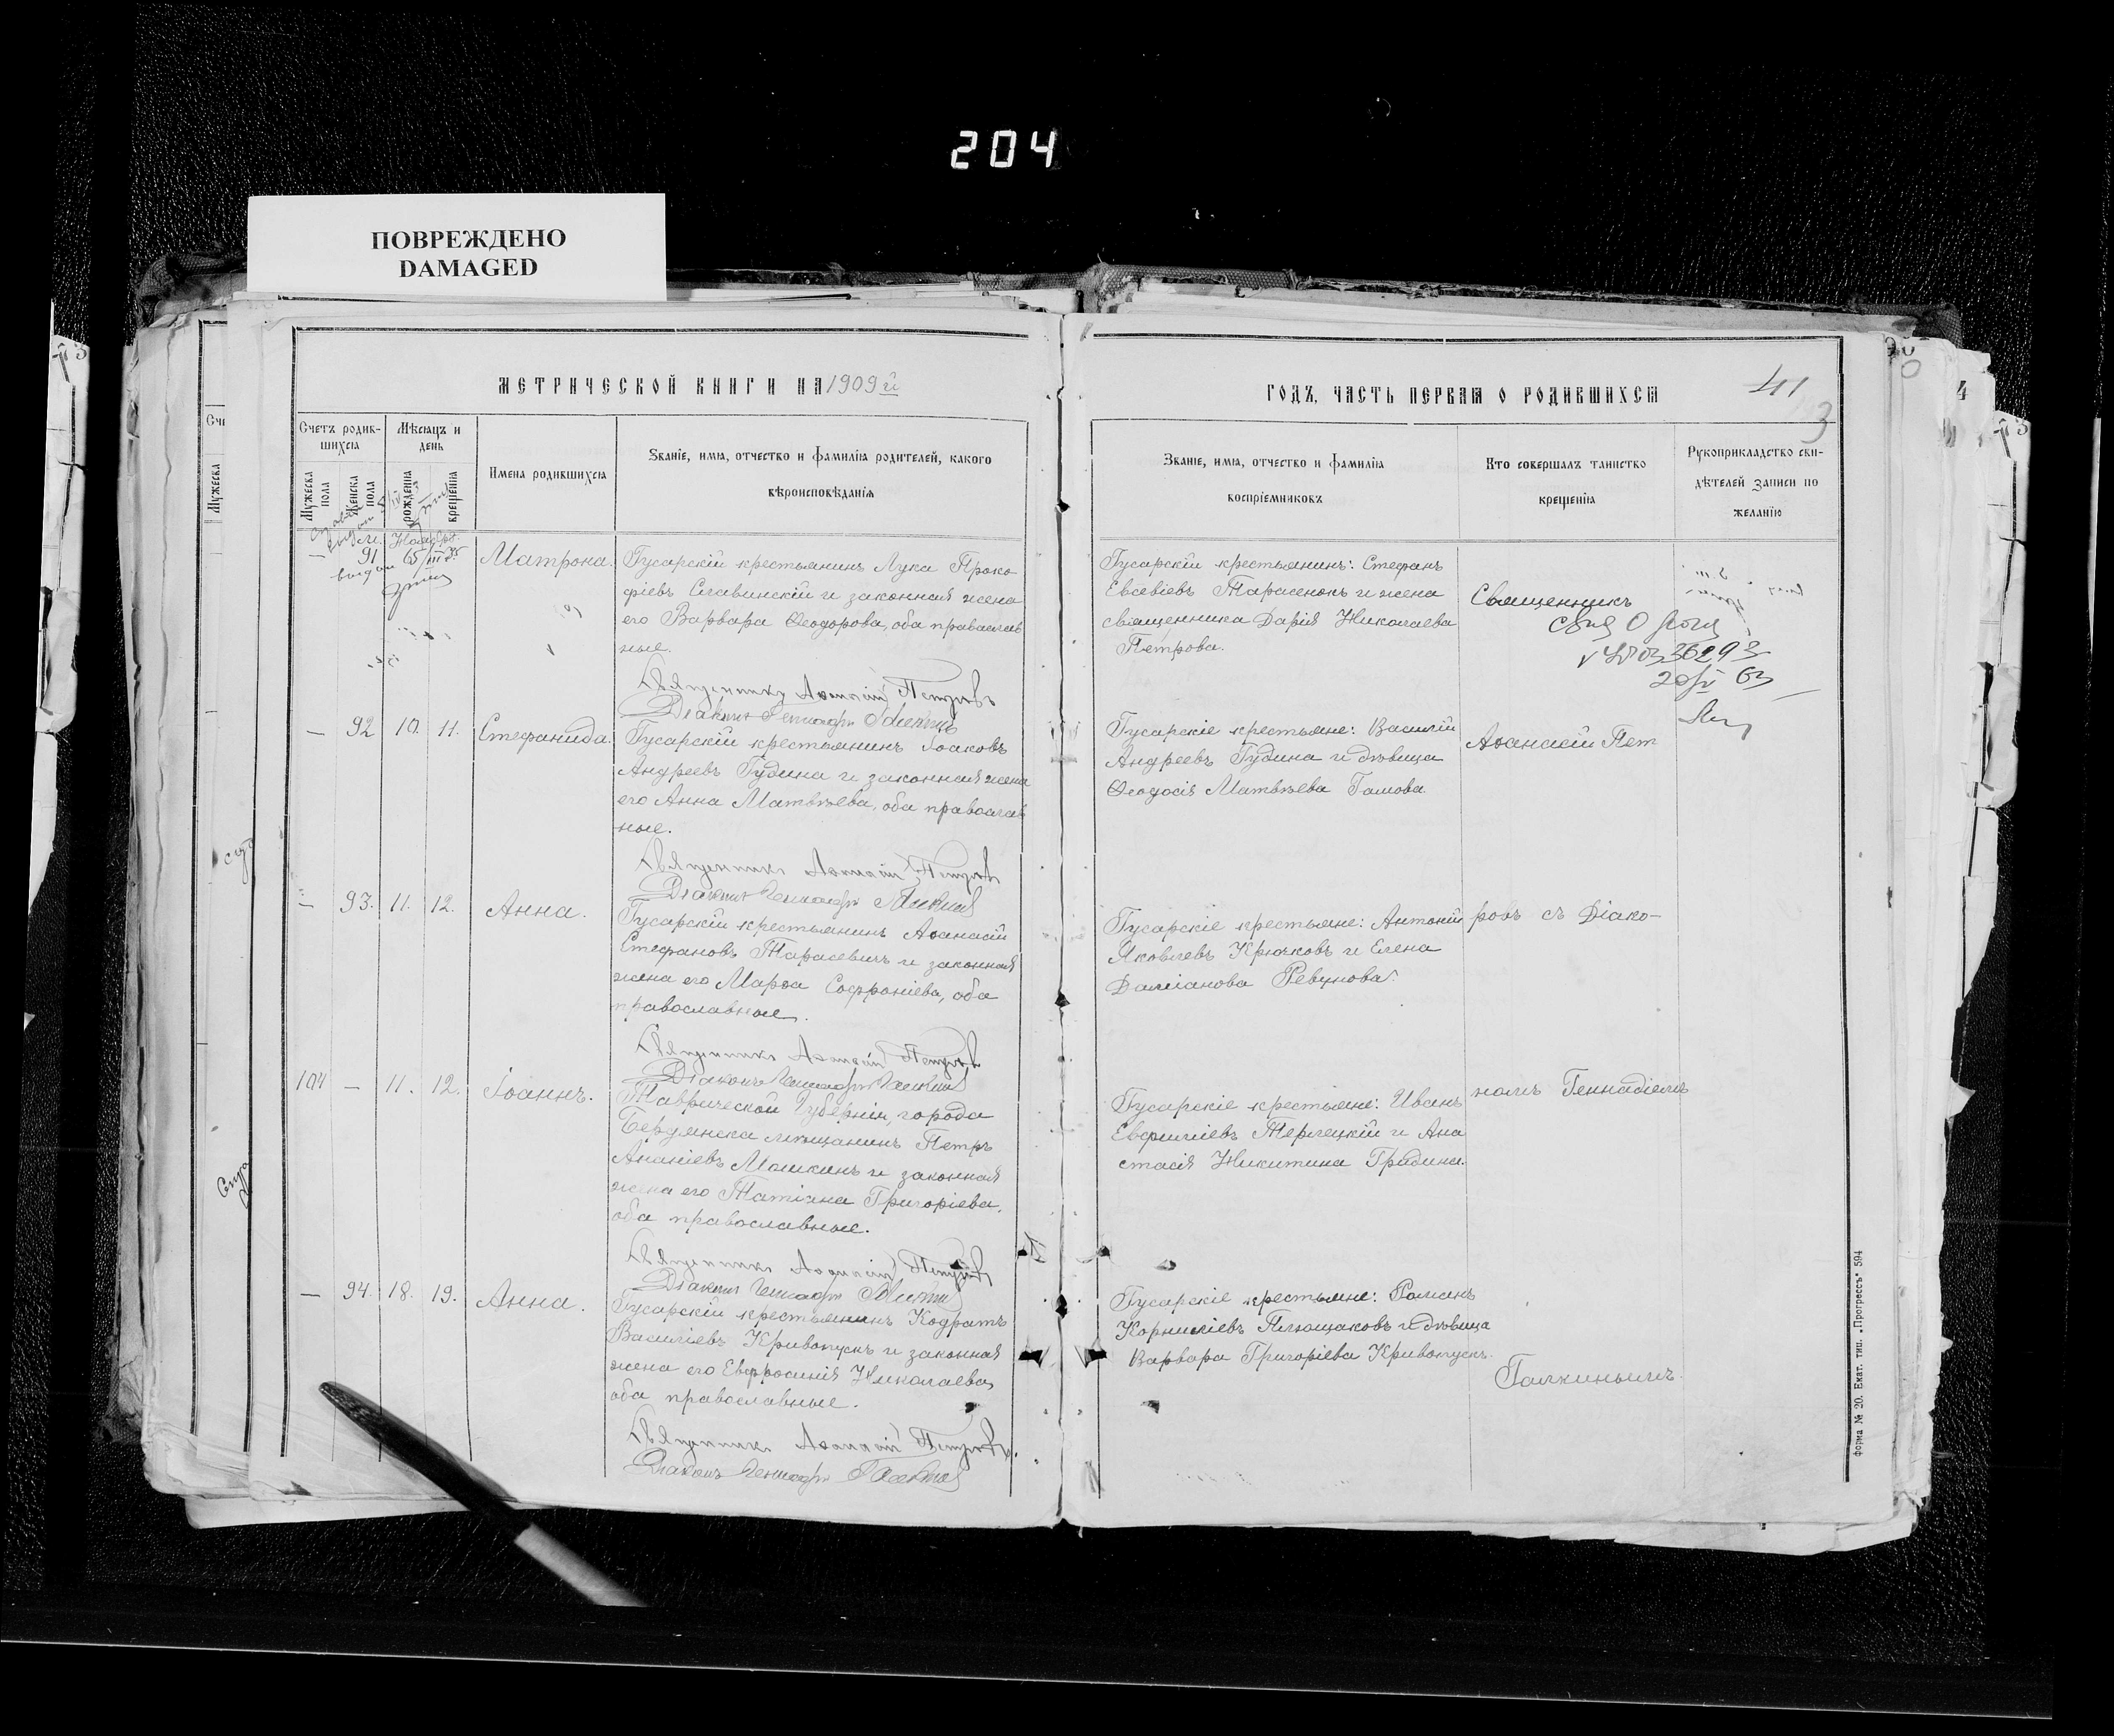 204
ПОВРЕЖДЕНО
DAMAGED
МЕТРИЧЕСКОЙ КНИГИ НА 1909 й
Счетъ родив-
шихся
Мужеска пола
Женска пола
Мѣсяцъ и
день
рожденія
крещенія
Имена родившихся
Званіе, имя, отчество и фамилія родителей, какого
вѣроисповѣданія
— 91
Матрона.
Гусарскій крестьянинъ Лука Проко
фіевъ Славинскій и законная жена
его Варвара Ѳеодорова, оба православ
ные.
Священникъ Аѳанасій Петровъ
Діаконъ Геннадій Галкинъ
— 92 10. 11. Стефанида.
Гусарскій крестьянинъ Іоаковъ
Андреевъ Гудина и законная жена
его Анна Матвѣева, оба православ
ные.
Священникъ Аѳанасій Петровъ
Діаконъ Геннадій Галкинъ
— 93. 11. 12. Анна.
Гусарскій крестьянинъ Аѳанасій
Стефановъ Тарасевичъ и законная
жена его Марѳа Софроніева, оба
православные.
Священникъ Аѳанасій Петровъ
Діаконъ Геннадій Галкинъ
104 — 11. 12. Іоаннъ.
Таврической Губерніи, города
Бердянска мѣщанинъ Петръ
Ананіевъ Мошкинъ и законная
жена его Татіана Григоріева,
оба православные.
Священникъ Аѳанасій Петровъ
Діаконъ Геннадій Галкинъ
— 94. 18. 19. Анна.
Гусарскій крестьянинъ Кодратъ
Василіевъ Кривопускъ и законная
жена его Евфросинія Николаева,
оба православные.
Священникъ Аѳанасій Петровъ.
Діаконъ Геннадій Галкинъ
ГОДЪ, ЧАСТЬ ПЕРВАЯ О РОДИВШИХСЯ
41
3
Званіе, имя, отчество и фамилія
воспріемниковъ
Кто совершалъ таинство
крещенія
Рукоприкладство сви-
дѣтелей записи по
желанію
Гусарскій крестьянинъ: Стефанъ
Евсевіевъ Тарасенокъ и жена
священника Дарія Николаева
Петрова.
Гусарскіе крестьяне: Василій
Андреевъ Гудина и дѣвица
Ѳеодосія Матвѣева Гамова.
Гусарскіе крестьяне: Антоній
Яковлевъ Крючковъ и Елена
Даміанова Ревунова.
Гусарскіе крестьяне: Иванъ
Евфиміевъ Терлецкій и Ана
стасія Никитина Гридина.
Гусарскіе крестьяне: Романъ
Корниліевъ Плющаковъ и дѣвица
Варвара Григоріева Кривопускъ.
Священникъ
Аѳанасій Пет
ровъ съ Діако-
номъ Геннадіемъ
Галкинымъ.
Форма № 20. Екат. тип. „Прогрессъ" 594